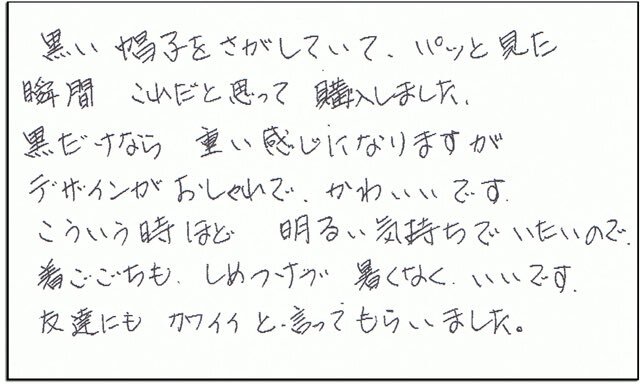 黒い帽子をさがしていて、パッと見た
瞬間 これだと思って 購入しました。
黒だけなら 重い感じになりますが
デザインがおしゃれで、かわいいです。
こういう時ほど 明るい気持ちでいたいので、
着ごごちも、しめつけず 暑くなく、いいです。
友達にも カワイイと言ってもらいました。